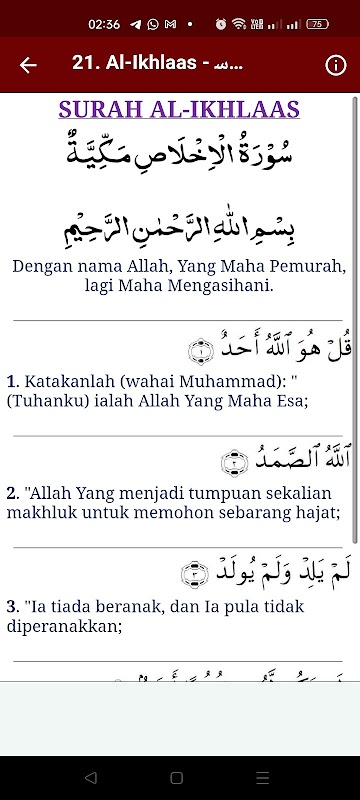 02:36
75
21. Al-Ikhlaas - سـ...
SURAH AL-IKHLAAS
سُوْرَةُ الْاِخْلَاصِ مَكِّيَّةٌ
بِسْمِ اللهِ الرَّحْمٰنِ الرَّحِيْمِ
Dengan nama Allah, Yang Maha Pemurah,
lagi Maha Mengasihani.
قُلْ هُوَ ٱللَّهُ أَحَدٌ ١
1. Katakanlah (wahai Muhammad): "
(Tuhanku) ialah Allah Yang Maha Esa;
ٱللَّهُ ٱلصَّمَدُ ٢
2. "Allah Yang menjadi tumpuan sekalian
makhluk untuk memohon sebarang hajat;
لَمْ يَلِدْ وَلَمْ يُولَدْ ٣
3. "Ia tiada beranak, dan Ia pula tidak
diperanakkan;